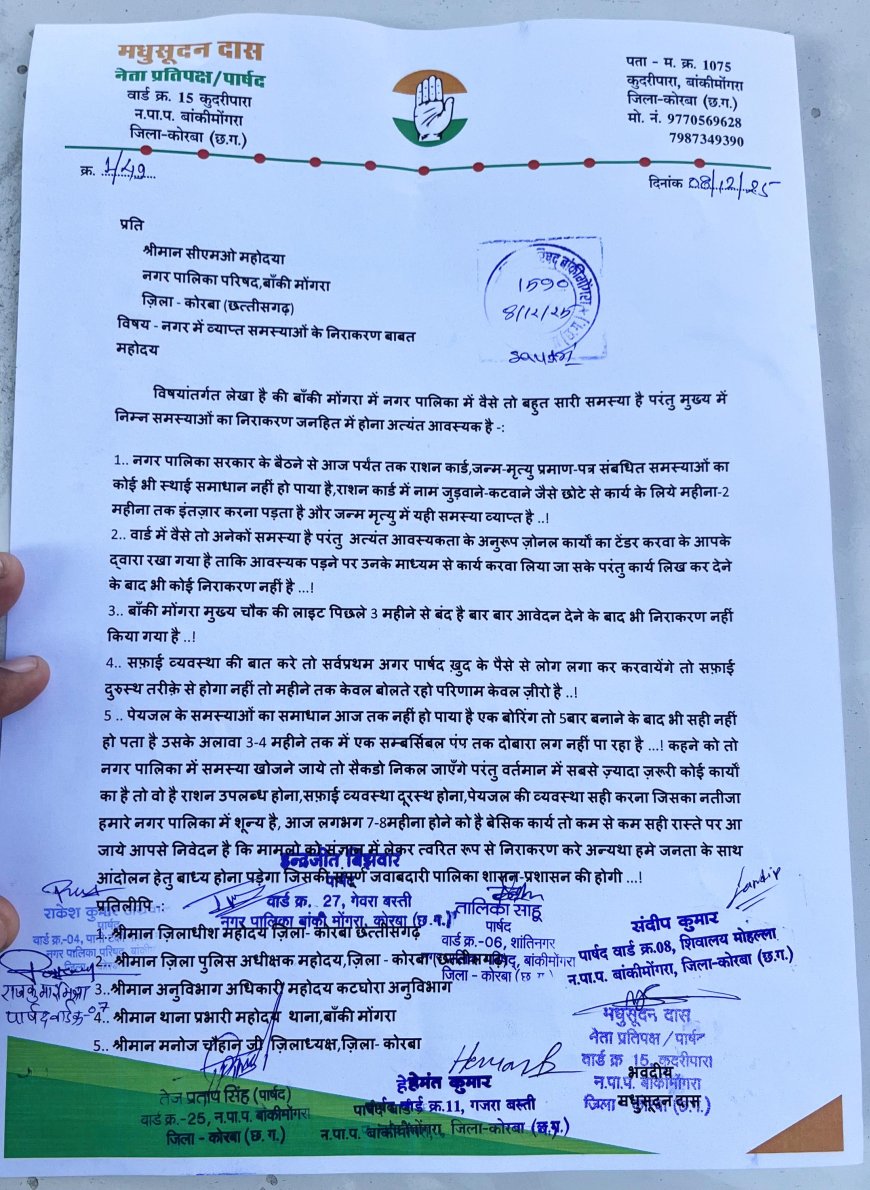 मधुसूदन दास
नेता प्रतिपक्ष/पार्षद
वार्ड क्र. 15 कुदरीपारा
न.पा.प. बांकीमोंगरा
जिला-कोरबा (छ.ग.)
पता - म. क्र. 1075
कुदरीपारा, बांकीमोंगरा
जिला-कोरबा (छ.ग.)
मो. नं. 9770569628
7987349390
क्र. 1/49
दिनांक 08/12/25
प्रति
श्रीमान सीएमओ महोदया
नगर पालिका परिषद,बाँकी मोंगरा
ज़िला - कोरबा (छत्तीसगढ़)
विषय - नगर में व्याप्त समस्याओं के निराकरण बाबत
महोदय
बांकीमोंगरा
1590
8/12/25
विषयांतर्गत लेखा है की बाँकी मोंगरा में नगर पालिका में वैसे तो बहुत सारी समस्या है परंतु मुख्य में
निम्न समस्याओं का निराकरण जनहित में होना अत्यंत आवस्यक है -:
1.. नगर पालिका सरकार के बैठने से आज पर्यंत तक राशन कार्ड,जन्म-मृत्यु प्रमाण-पत्र संबधित समस्याओं का
कोई भी स्थाई समाधान नहीं हो पाया है,राशन कार्ड में नाम जुड़वाने-कटवाने जैसे छोटे से कार्य के लिये महीना-2
महीना तक इंतज़ार करना पड़ता है और जन्म मृत्यु में यही समस्या व्याप्त है ..!
2.. वार्ड में वैसे तो अनेकों समस्या है परंतु अत्यंत आवस्यकता के अनुरूप ज़ोनल कार्यों का टेंडर करवा के आपके
द्वारा रखा गया है ताकि आवस्यक पड़ने पर उनके माध्यम से कार्य करवा लिया जा सके परंतु कार्य लिख कर देने
के बाद भी कोई निराकरण नहीं है ...!
3.. बाँकी मोंगरा मुख्य चौक की लाइट पिछले 3 महीने से बंद है बार बार आवेदन देने के बाद भी निराकरण नहीं
किया गया है ..!
4.. सफ़ाई व्यवस्था की बात करे तो सर्वप्रथम अगर पार्षद ख़ुद के पैसे से लोग लगा कर करवायेंगे तो सफ़ाई
दुरुस्थ तरीक़े से होगा नहीं तो महीने तक केवल बोलते रहो परिणाम केवल ज़ीरो है ..!
5 .. पेयजल के समस्याओं का समाधान आज तक नहीं हो पाया है एक बोरिंग तो 5बार बनाने के बाद भी सही नहीं
हो पता है उसके अलावा 3-4 महीने तक में एक सम्बर्सिबल पंप तक दोबारा लग नहीं पा रहा है ...! कहने को तो
नगर पालिका में समस्या खोजने जाये तो सैकडो निकल जाएँगे परंतु वर्तमान में सबसे ज़्यादा ज़रूरी कोई कार्यो
का है तो वो है राशन उपलब्ध होना,सफ़ाई व्यवस्था दूरस्थ होना,पेयजल की व्यवस्था सही करना जिसका नतीजा
हमारे नगर पालिका में शून्य है, आज लगभग 7-8महीना होने को है बेसिक कार्य तो कम से कम सही रास्ते पर आ
जाये आपसे निवेदन है कि मामलो को संज्ञान में लेकर त्वरित रूप से निराकरण करे अन्यथा हमे जनता के साथ
आंदोलन हेतु बाध्य होना पड़ेगा जिसकी सम्पूर्ण जवाबदारी पालिका शासन-प्रशासन की होगी ...!
प्रतिलीपि -:
1. श्रीमान ज़िलाधीश महोदय ज़िला- कोरबा छत्तीसगढ़
2. श्रीमान ज़िला पुलिस अधीक्षक महोदय,ज़िला - कोरबा
3..श्रीमान अनुविभाग अधिकारी महोदय कटघोरा अनुविभाग
4.. श्रीमान थाना प्रभारी महोदय थाना,बाँकी मोंगरा
5.. श्रीमान मनोज चौहान जी ज़िलाध्यक्ष,ज़िला - कोरबा
इन्द्रजीत बिंझवार
पार्षद
वार्ड क्र. 27, गेवरा बस्ती
नगर पालिका बांकी मोंगरा, कोरबा (छ.ग.)
तालिका साहू
पार्षद
वार्ड क्र.-06, शांतिनगर
जिला - कोरबा
संदीप कुमार
पार्षद वार्ड क्र.08, शिवालय मोहल्ला
न.पा.प. बांकीमोंगरा, जिला-कोरबा (छ.ग.)
राकेश कुमार
पार्षद
वार्ड क्र.-04,
नगर पालिका परिषद
पार्षद वार्ड क्र. 07
मधुसूदन दास
नेता प्रतिपक्ष/पार्षद
वार्ड क्र 15, कुदरीपारा
न.पा.प. बांकीमोंगरा
भवदीय
मधुसूदन दास
तेज प्रताप सिंह (पार्षद)
वार्ड क्र.-25, न.पा.प. बांकीमोंगरा
जिला - कोरबा (छ.ग.)
हेमंत कुमार
पार्षद वार्ड क्र.11, गजरा बस्ती
न.पा.प. बांकीमोंगरा, जिला-कोरबा (छ.ग.)